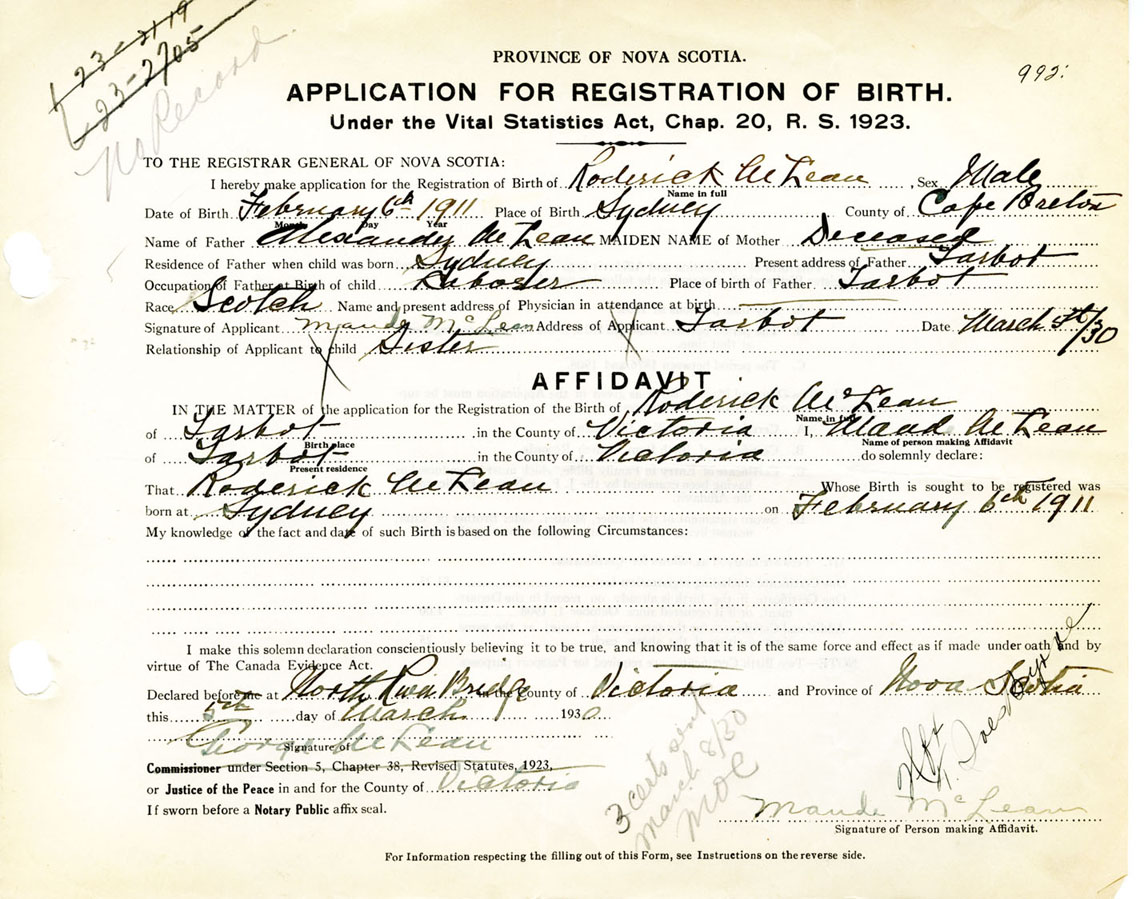 23-2119
23-2705
No Record
PROVINCE OF NOVA SCOTIA.
992
APPLICATION FOR REGISTRATION OF BIRTH.
Under the Vital Statistics Act, Chap. 20, R. S. 1923.
TO THE REGISTRAR GENERAL OF NOVA SCOTIA:
I hereby make application for the Registration of Birth of Roderick McLean, Sex Male
Name in full
Date of Birth February 6th 1911 Place of Birth Sydney County of Cape Breton
Month Day Year
Name of Father Alexander McLean MAIDEN NAME of Mother Deceased
Residence of Father when child was born Sydney Present address of Father Tarbot
Occupation of Father at Birth of child Laborer Place of birth of Father Tarbot
Race Scotch Name and present address of Physician in attendance at birth
Signature of Applicant Maude McLean Address of Applicant Tarbot Date March 5th/30
Relationship of Applicant to child Sister
AFFIDAVIT
IN THE MATTER of the application for the Registration of the Birth of Roderick McLean
Name in full
of Tarbot in the County of Victoria I, Maud McLean
Birth place Name of person making Affidavit
of Tarbot in the County of Victoria do solemnly declare:
Present residence
That Roderick McLean Whose Birth is sought to be registered was
born at Sydney on February 6th 1911
My knowledge of the fact and date of such Birth is based on the following Circumstances:
I make this solemn declaration conscientiously believing it to be true, and knowing that it is of the same force and effect as if made under oath and by
virtue of The Canada Evidence Act.
Declared before me at North River Bridge in the County of Victoria and Province of Nova Scotia
this 5th day of March 1930
George McLean
Signature of
Commissioner under Section 5, Chapter 38, Revised Statutes, 1923,
or Justice of the Peace in and for the County of Victoria
If sworn before a Notary Public affix seal.
3 certs sent
March 8/30
Maude McLean
Signature of Person making Affidavit.
For Information respecting the filling out of this Form, see Instructions on the reverse side.